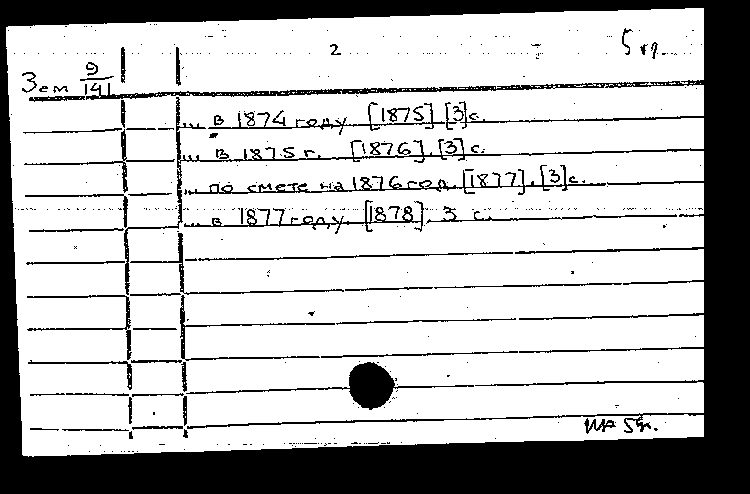 2
Зем 9/141
... в 1874 году. [1875]. [3]с.
... в 1875 г. [1876]. [3] с.
... по смете на 1876 год. [1877]. [3]с.
... в 1877 году. [1878]. 3 с.